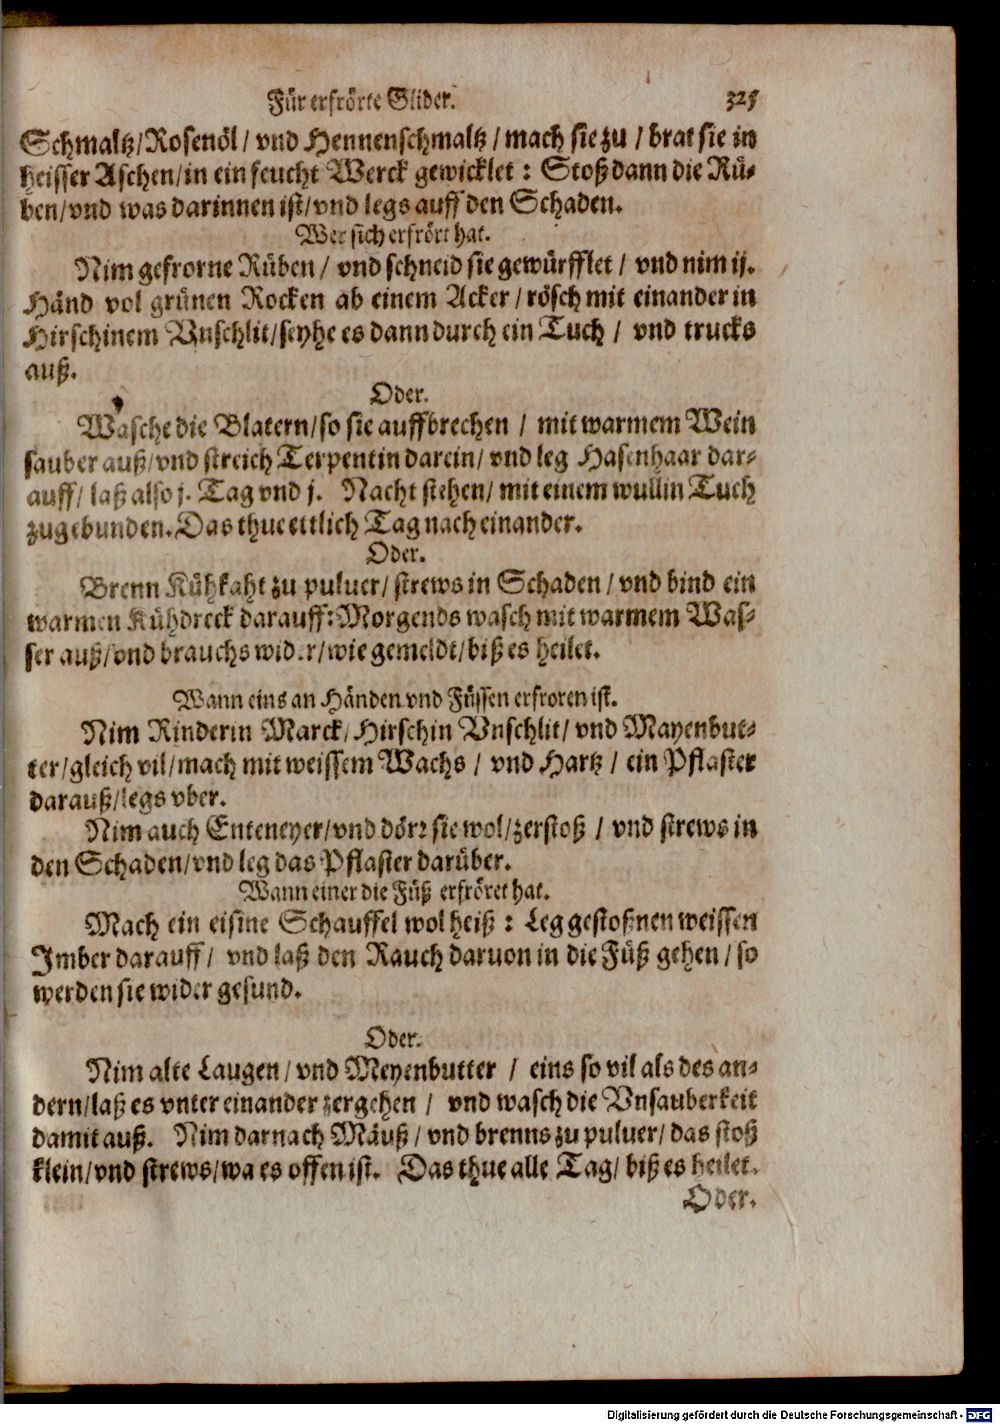 Für erfrörte Glider. 325
Schmaltz/Rosenöl/ vnd Hennenschmaltz/ mach sie zu / brat sie in
heisser Aschen/in ein feucht Werck gewicklet: Stoß dann die Rü-
ben/vnd was darinnen ist/vnd legs auff den Schaden.
Wer sich erfrört hat.
Nim gefrorne Rüben/ vnd schneid sie gewürfflet/ vnd nim ij.
Händ vol grünen Rocken ab einem Acker/rösch mit einander in
Hirschinem Vnschlit/seyhe es dann durch ein Tuch / vnd trucks
auß.
Oder.
Wasche die Blatern/so sie auffbrechen / mit warmem Wein
sauber auß/vnd streich Terpentin darein/ vnd leg Hasenhaar dar-
auff/ laß also j. Tag vnd j. Nacht stehen/ mit einem wullin Tuch
zugebunden. Das thue ettlich Tag nach einander.
Oder.
Brenn Kühkaht zu puluer/ strews in Schaden/ vnd bind ein
warmen Kühdreck darauff: Morgends wasch mit warmem Was-
ser auß/vnd brauchs wider/wie gemeldt/biß es heilet.
Wann eins an Händen vnd Füssen erfroren ist.
Nim Rinderin Marck/Hirschin Vnschlit/ vnd Mayenbut-
ter/gleich vil/mach mit weissem Wachs / vnd Hartz / ein Pflaster
darauß/legs vber.
Nim auch Enteneyer/vnd dörr sie wol/zerstoß / vnd strews in
den Schaden/vnd leg das Pflaster darüber.
Wann einer die Füß erfröret hat.
Mach ein eisine Schauffel wol heiß: Leg gestoßnen weissen
Imber darauff/ vnd laß den Rauch daruon in die Füß gehen/so
werden sie wider gesund.
Oder.
Nim alte Laugen/ vnd Meyenbutter / eins so vil als des an-
dern/laß es vnter einander zergehen / vnd wasch die Vnsauberkeit
damit auß. Nim darnach Mäuß/ vnd brenns zu puluer/ das stoß
klein/vnd strews/wa es offen ist. Das thue alle Tag/ biß es heilet.
Oder.
Digitalisierung gefördert durch die Deutsche Forschungsgemeinschaft - DFG